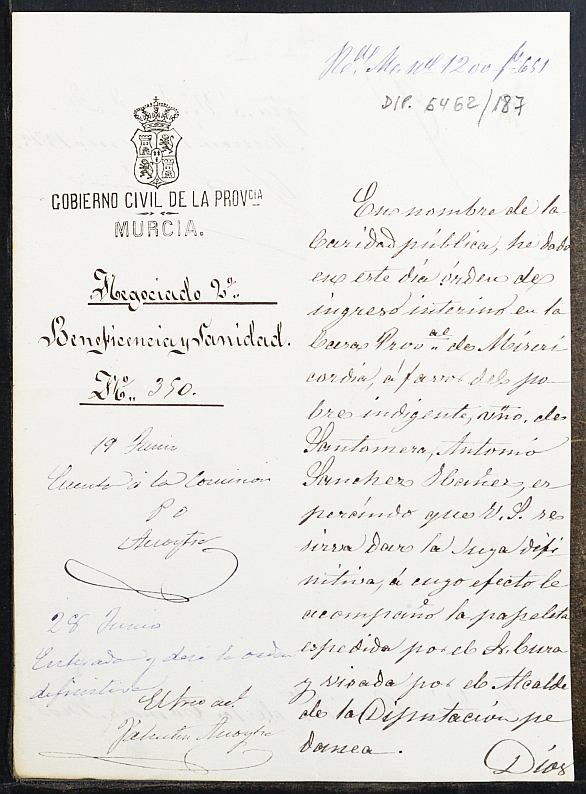 DIP. 6462/187
GOBIERNO CIVIL DE LA PROVcia
MURCIA.
Negociado 2º
Beneficencia y Sanidad.
Nº 350.
19 Junio
Cuenta á la Comision
P O
28 Junio
Enterada y dese la orden
definitiva
En nombre de la
Caridad pública, he dado
en este dia órden de
ingreso interino en la
Casa Proval de Miseri
cordia, á favor del po-
bre indigente, vño. de
Santomera, Antonio
Sanchez Ibañez, es
perando que V. S. se
sirva dar la suya difi-
nitiva, á cuyo efecto le
acompaño la papeleta
espedida por el Sr. Cura
y visada por el Alcalde
de la Diputación pe
danea.
Dios